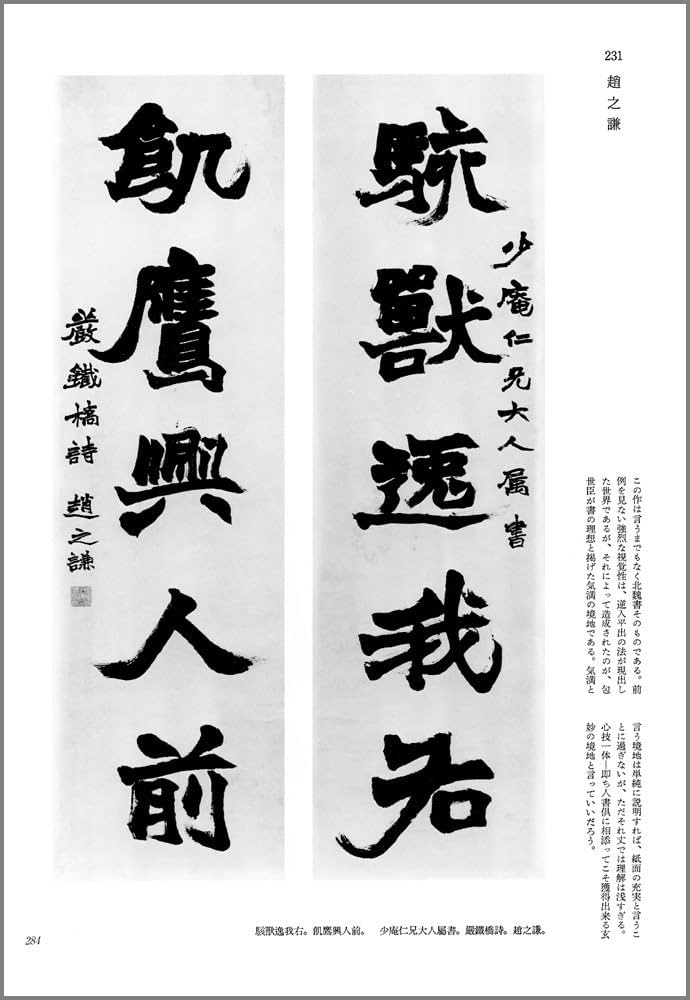 231
趙之謙
この作は言うまでもなく北魏書そのものである。前
例を見ない強烈な視覚性は、逆入平出の法が現出し
た世界であるが、それによって造成されたのが、包
世臣が書の理想と掲げた気満の境地である。気満と
言う境地は単純に説明すれば、紙面の充実と言うこ
とに過ぎないが、ただそれ丈では理解は浅すぎる。
心技一体―即ち人書倶に相添ってこそ獲得出来る玄
妙の境地と言っていいだろう。
少庵仁兄大人属書
駭獸逸我右
飢鷹興人前
嚴鐵橋詩 趙之謙
駭獣逸我右。飢鷹興人前。 少庵仁兄大人屬書。嚴鐵橋詩。趙之謙。
284